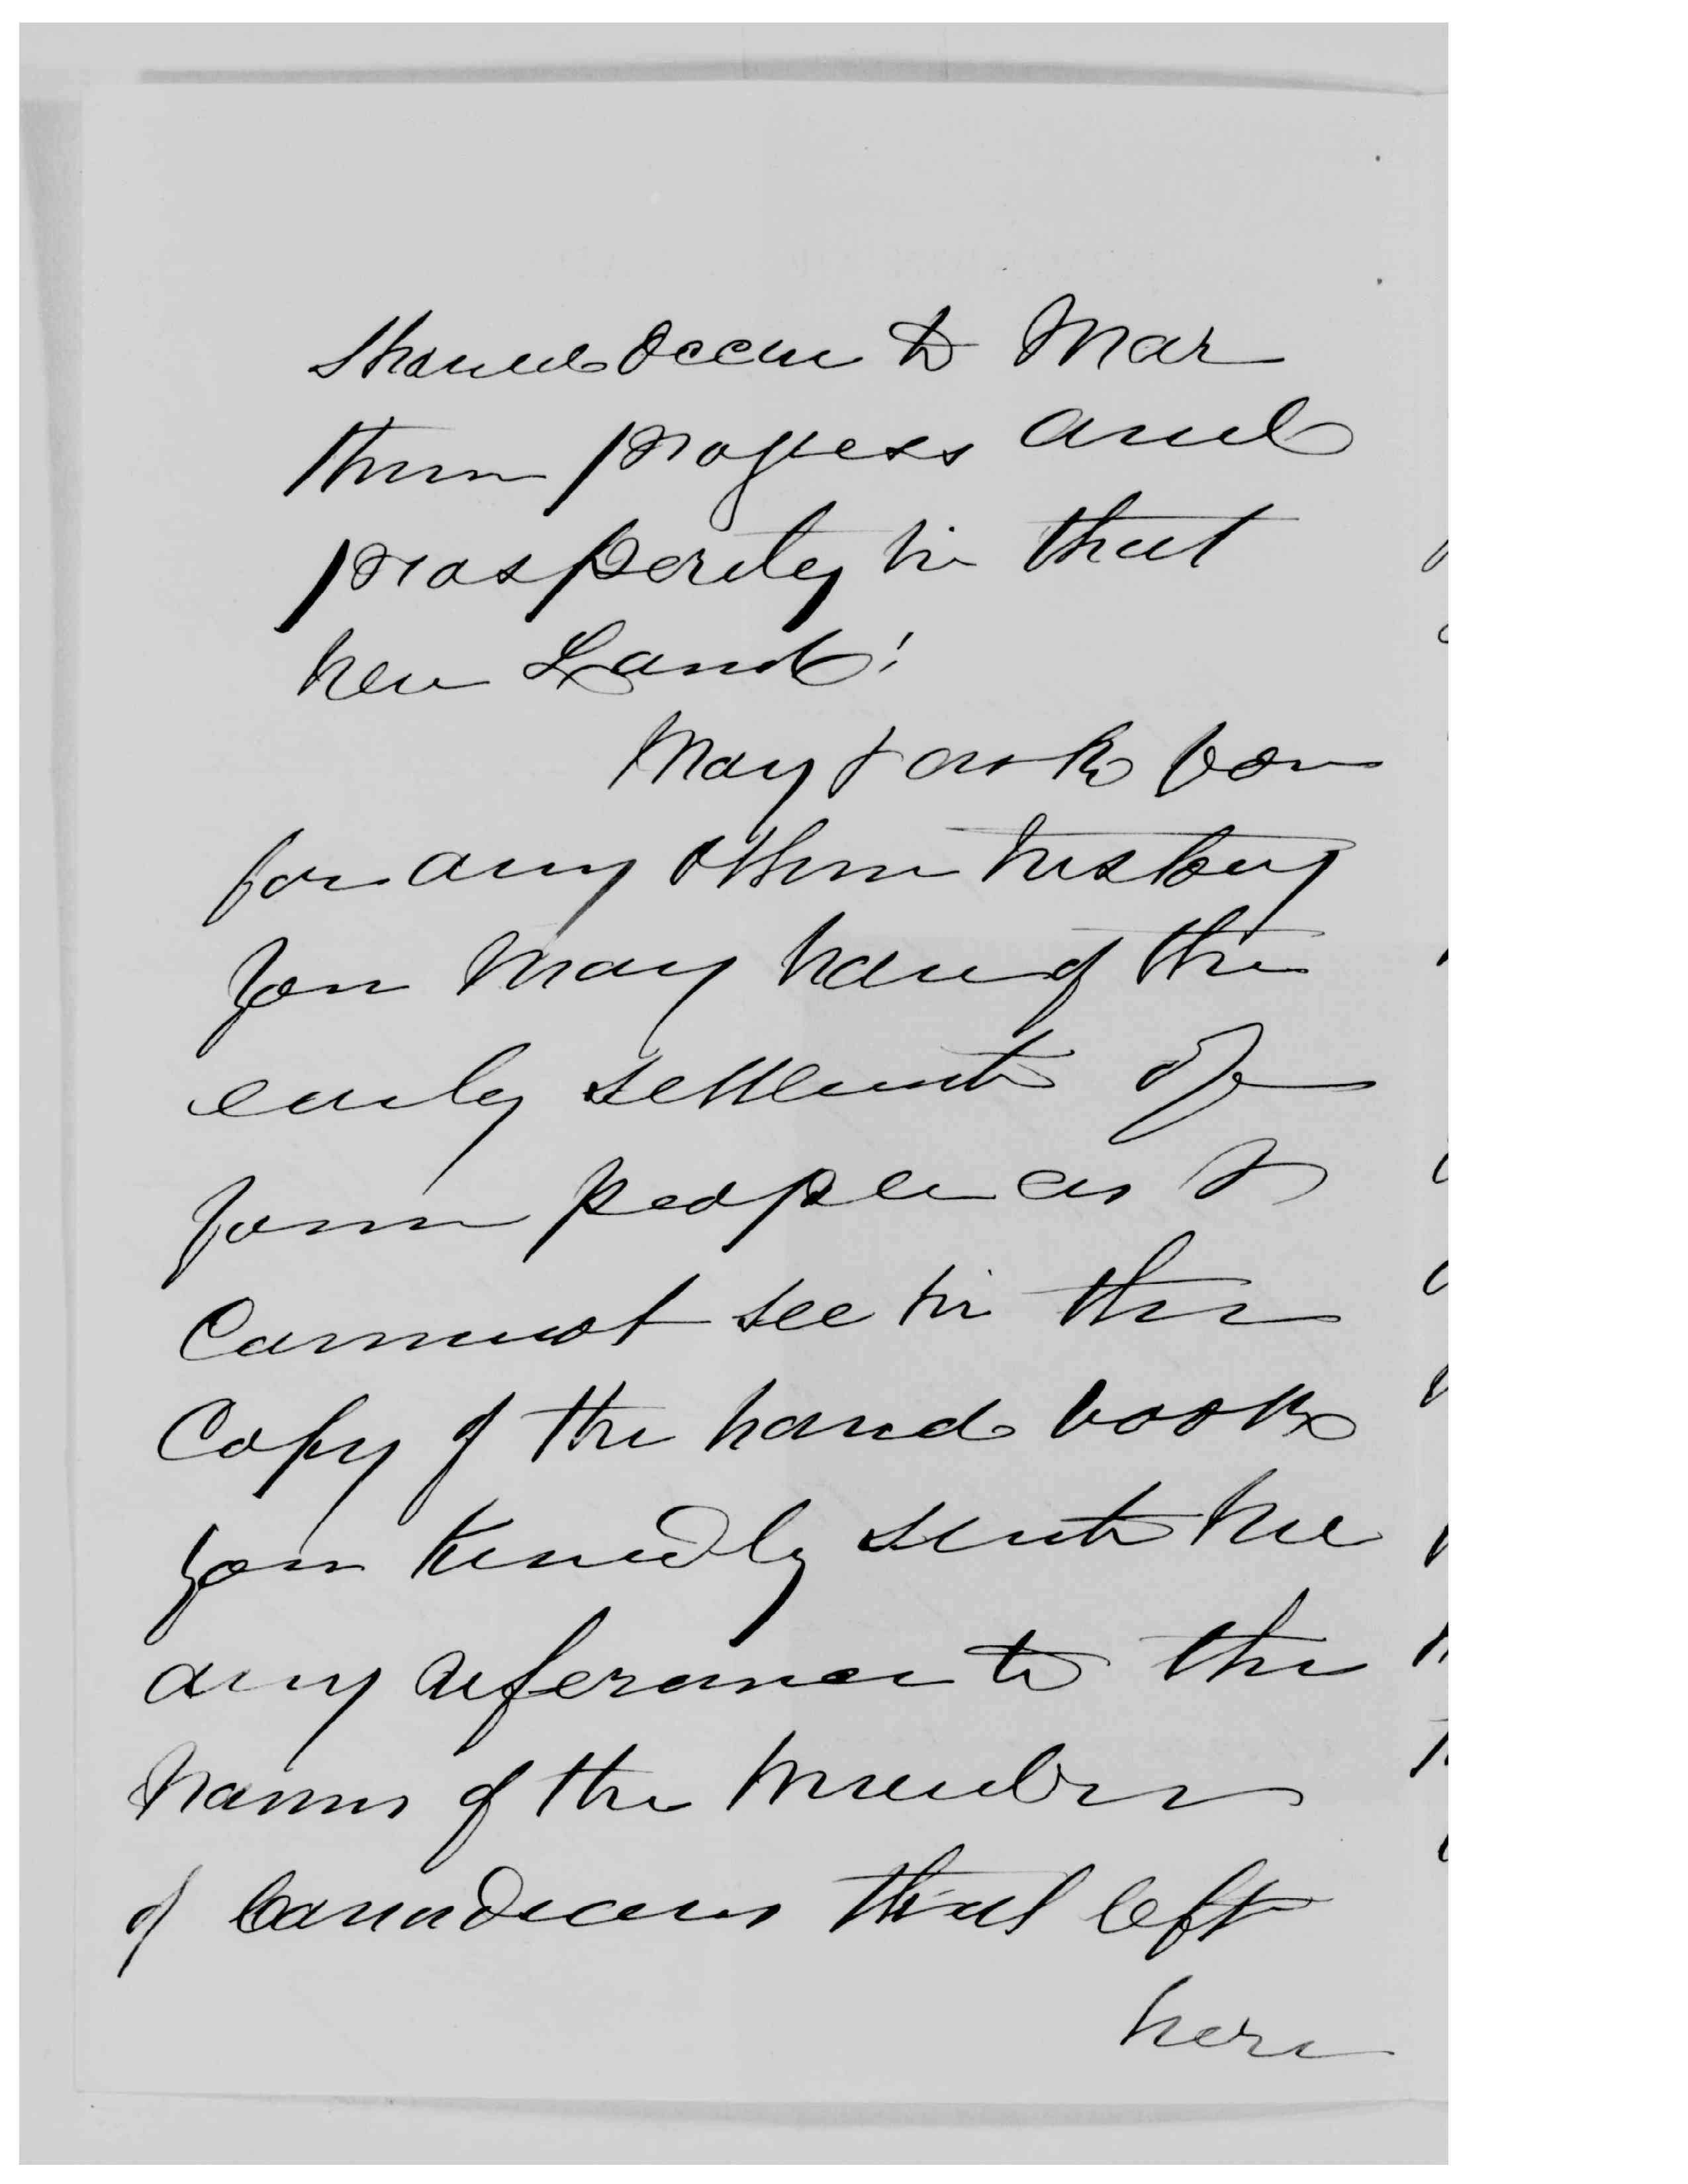 should occur to mar
their progress and
prosperity in that
new Land!
May I ask you
for any other history
you may have of the
early settlement of
your people as I
cannot see in the
Copy of the hand book
you kindly sent me
any reference to the
names of the members
of Canadians that left
here